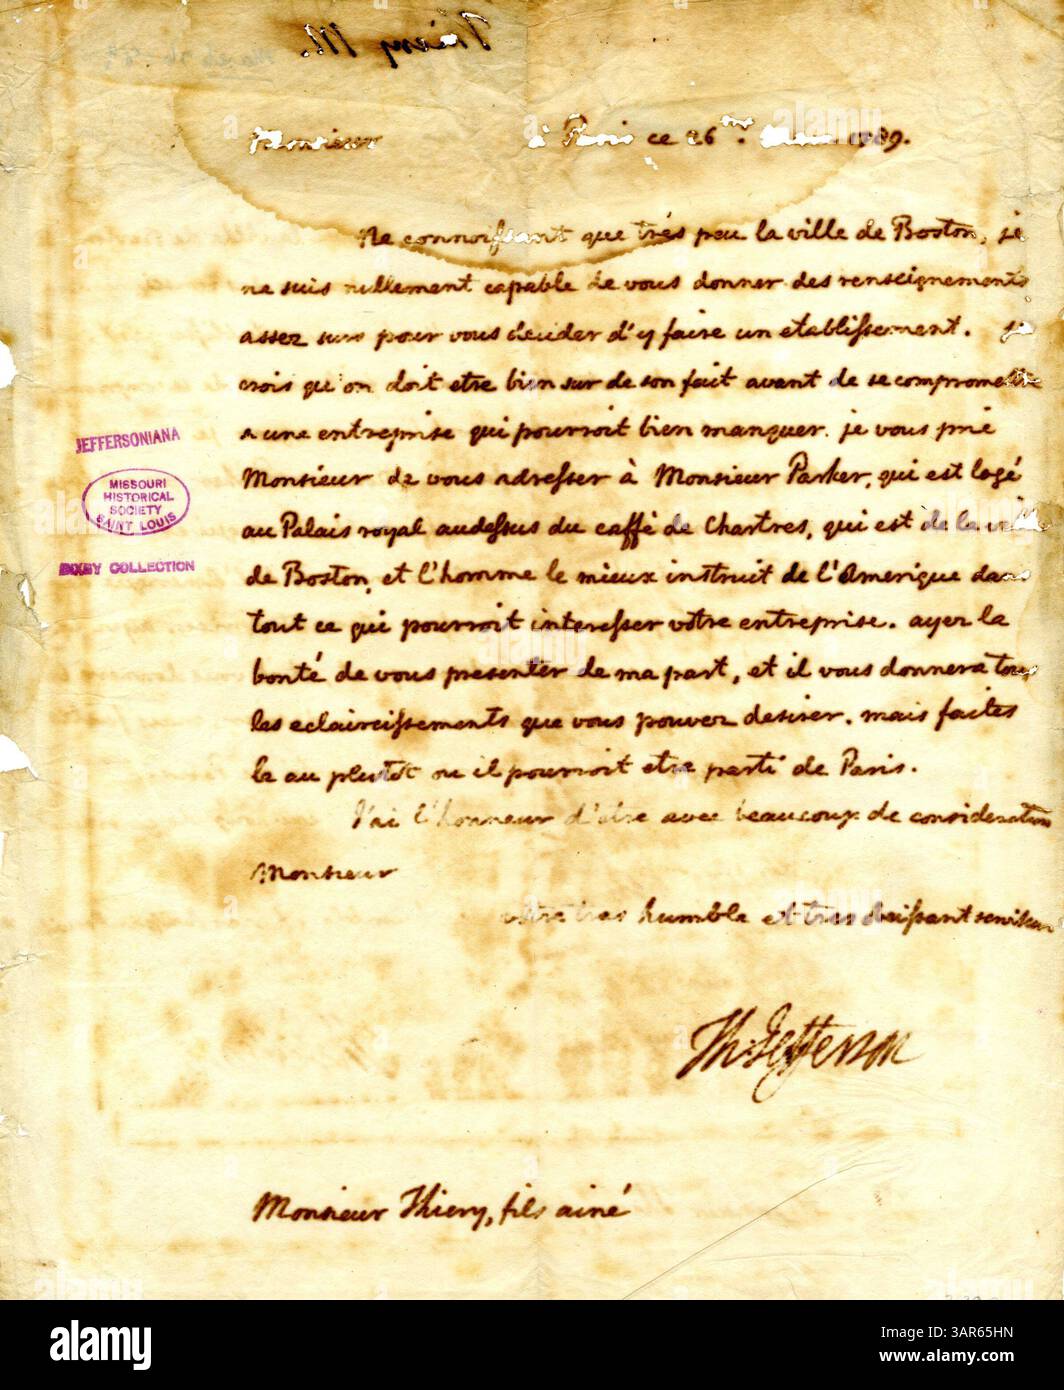 Thiery M.
Monsieur à Paris ce 26me. 1789.
Ne connoissant que trés peu la ville de Boston, je
ne suis nullement capable de vous donner des renseignements
assez surs pour vous decider d'y faire un etablissement. je
crois qu'on doit etre bien sur de son fait avant de se compromettre
a une entreprise qui pourroit bien manquer. je vous prie
Monsieur de vous adresser à Monsieur Parker, qui est logé
au Palais royal audessus du caffé de Chartres, qui est de la ville
de Boston, et l'homme le mieux instruit de l'Amerique dans
tout ce qui pourroit interesser votre entreprise. ayez la
bonté de vous presenter de ma part, et il vous donnera tous
les eclaircissements que vous pouvez desirer. mais faites
le au plutôt ou il pourroit etre parti de Paris.
J'ai l'honneur d'etre avec beaucoup de consideration
Monsieur
votre tres humble et tres obeissant serviteur
Th: Jefferson
Monsieur Thiery, fils ainé
JEFFERSONIANA
MISSOURI
HISTORICAL
SOCIETY
SAINT LOUIS
BIXBY COLLECTION
alamy
Image ID: 3AR65HN
www.alamy.com